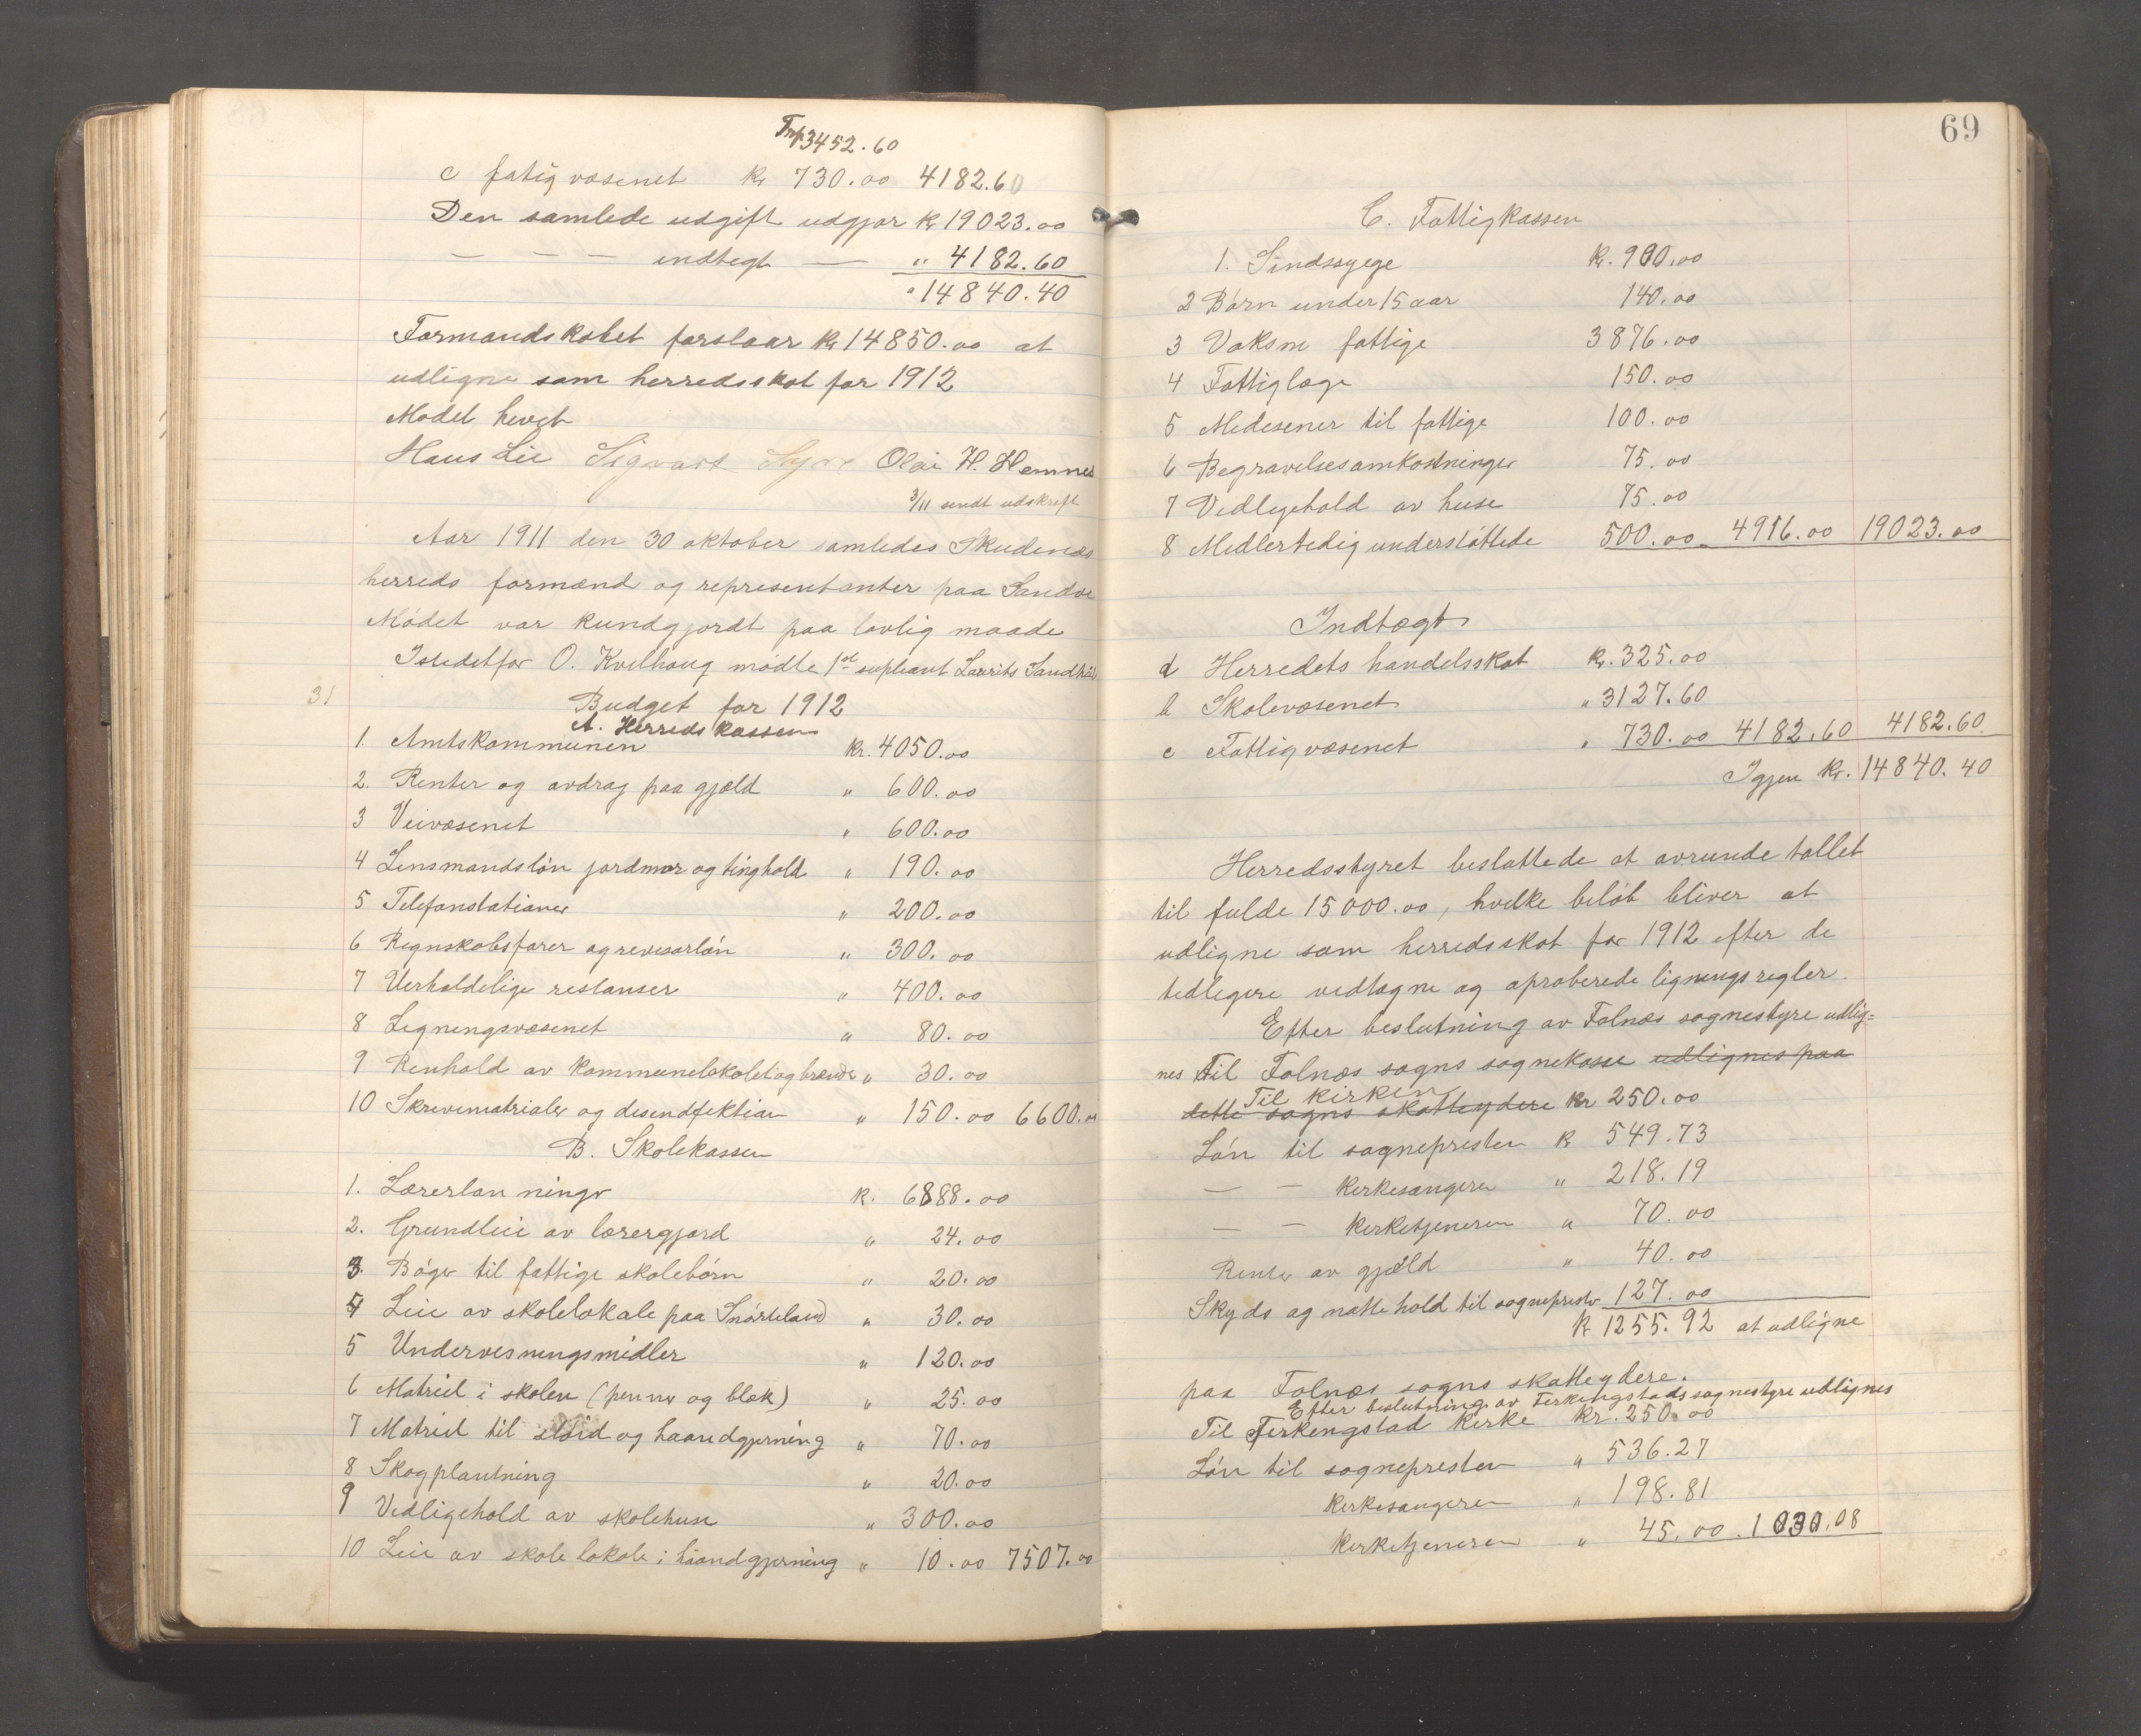 Trp 3452.60
c fatigvæsenet kr 730.00 4182.60
Den samlede udgift udgjør kr 19023.00
— — — indtegt — " 4182.60
" 14840.40
Formandskabet forslaar kr 14850.00 at
udligne som herredsskat for 1912
Mødet hevet
Hans Lie Sigvart Olai H. Hemnes
3/11 sendt udskrift
Aar 1911 den 30 oktober samledes Skudenes
herreds formænd og representanter paa Sandve
Mødet var kundgjordt paa lovlig maade
Istedetfor O. Kvilhaug mødte 1ste supleant Laurits Sandhåland
31
Budget for 1912
A. Herredskassen
1. Amtskommunen kr. 4050.00
2. Renter og avdrag paa gjæld " 600.00
3 Veivæsenet " 600.00
4 Lensmandsløn jordmor og tinghold " 190.00
5 Telefonstationer " 200.00
6 Regnskabsfører og revisorløn " 300.00
7 Uerholdelige restanser " 400.00
8 Ligningsvæsenet " 80.00
9 Renhold av kommunelokalet og brænde " 30.00
10 Skrivematrialer og desendfektion " 150.00 6600.00
B. Skolekassen
1. Lærerlønninger k. 6888.00
2. Grundleie av lærergjord " 24.00
3. Bøger til fattige skolebørn " 20.00
4 Leie av skolelokale paa Snørteland " 30.00
5 Undervisningsmidler " 120.00
6 Matriel i skolen (penner og blæk) " 25.00
7 Matriel til sløid og haandgjerning " 70.00
8 Skogplantning " 20.00
9 Vedligehold av skolehuse " 300.00
10 Leie av skole lokale i haandgjerning " 10.00 7507.00
69
C. Fattigkassen
1. Sindssyge kr. 900.00
2 Børn under 15 aar 140.00
3 Voksne fattige 3876.00
4 Fattiglæge 150.00
5 Medesener til fattige 100.00
6 Begravelsesomkostninger 75.00
7 Vedlegehold av huse 75.00
8 Medlertedig understøttede 500.00 4916.00 19023.00
Indtægt
a Herredets handelsskat kr. 325.00
b Skolevæsenet " 3127.60
c Fattigvæsenet " 730.00 4182.60 4182.60
Igjen kr. 14840.40
Herredsstyret besluttede at avrunde tallet
til fulde 15000.00, hvilke beløb bliver at
udligne som herredsskat for 1912 efter de
tedligere vedtagne og aproberede ligningsregler.
Efter beslutning av Falnæs sognestyre udlig=
nes til Falnæs sogns sognekasse udlignes paa
Til kirken
dette sogns skatteydere kr 250.00
Løn til sognepresten k 549.73
— — kirkesangeren " 218.19
— — kirketjeneren " 70.00
Renter av gjæld " 40.00
Skyds og nattehold til sognepresten 127.00
k 1255.92 at udligne
paa Falnæs sogns skatteydere.
Efter beslutning av Ferkingstads sognestyre udlignes
Til Ferkengstad kirke kr. 250.00
Løn til sognepresten " 536.27
kirkesangeren " 198.81
kirketjeneren " 45.00. 1030.08